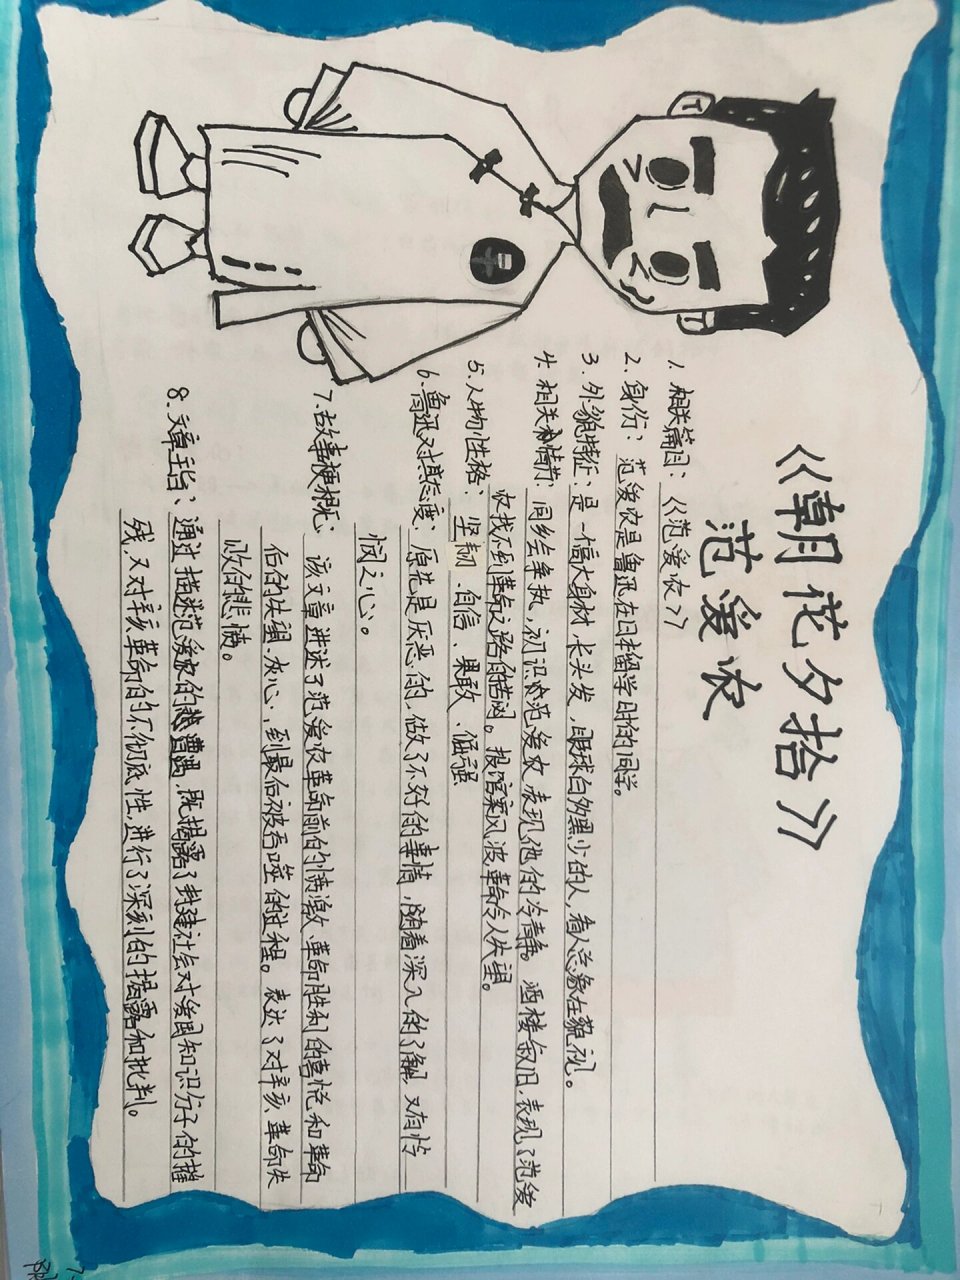 《朝花夕拾》
范爱农
1、相关篇目：《范爱农》
2、身份：范爱农是鲁迅在日本留学时的同学。
3、外貌特征：是一高大身材，长头发，眼球白多黑少的人，看人总像在藐视。
4、相关情节：同乡会争执，初识范爱农，表现他的冷静。酒楼叙旧，表现了范爱
农找不到革命之路的苦闷。报馆案风波革命令人失望。
5、人物性格：坚韧、自信、果敢、倔强
6、鲁迅对其态度：原先是厌恶的，做了不好的事情，随着深入的了解，又有怜
悯之心。
7、故事梗概：该文章讲述了范爱农革命前的愤激、革命胜利的喜悦和革命
后的失望、灰心，到最后被吞噬的过程。表达了对辛亥革命失
败的悲愤。
8、文章主旨：通过描述范爱农的悲遭遇，既揭露了封建社会对爱国知识分子的摧
残，又对辛亥革命的不彻底性，进行了深刻的揭露和批判。